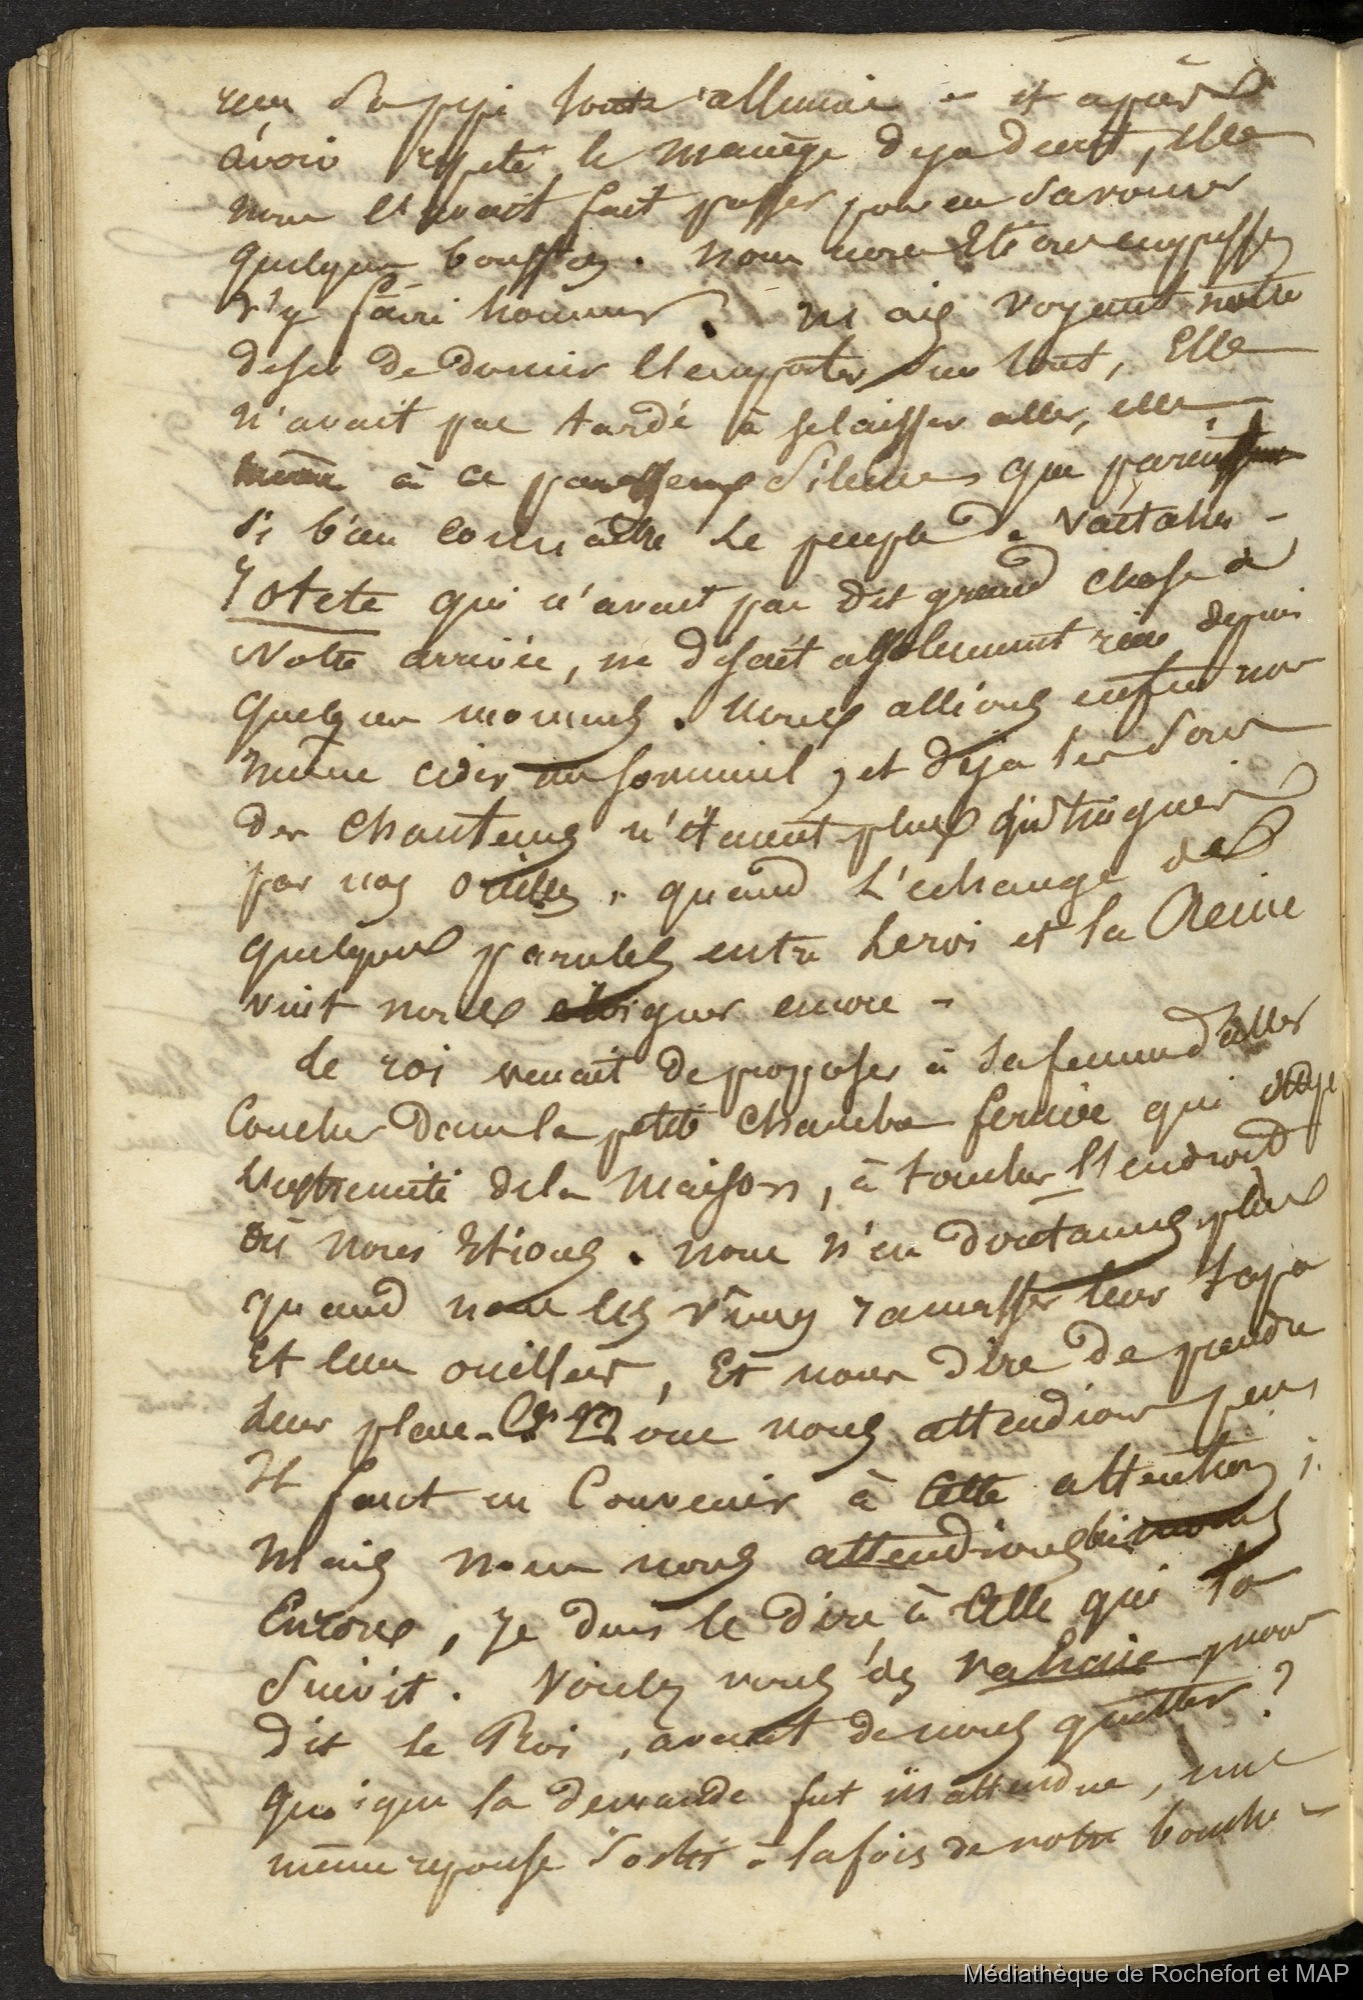 reçu sa pipe toute allumée - et après
avoir répété le manège déja decrit, Elle
nous l'avait fait passer pour en savourer
quelques bouffées. Nous nous Etions empressés
d'y faire honneur. Mais voyant notre
desir de dormir l'emporter sur tout, Elle
n'avait pas tardé à se laisser aller, elle
même à ce paresseux silence que parait
si bien connaitre le peuple de Vaitahu -
Iotete qui n'avait pas dit grand chose à
Notre arrivée, ne disait absolument rien depuis
quelques moments. Nous allions enfin nous
même céder au sommeil, et déja les sons
des chanteurs n'étaient plus distingués
par nos oreilles, quand L'echange de
quelques paroles entre Le roi et la Reine
vint nous eloigner encore -
Le roi venait de proposer à sa femme d'aller
Coucher dans la petite chambre fermée qui
L'extremité de la Maison, à toucher l'endroit
où nous Etions. Nous n'en doutames plus
quand nous les vimes ramasser leur tapa
Et leur oreillers, Et nous dire de prendre
Leur place. nous nous attendions peu
Il faut en Convenir à Cette attention;
Mais nous nous attendions bien moins
Encore, Je dois le dire à Celle qui la
Suivit. Voulez vous des vahiné pour
dit le Roi, avant de nous quitter?
quoique la demande fut inattendue, une
même reponse sortit à la fois de notre bouche -
Médiathèque de Rochefort et MAP